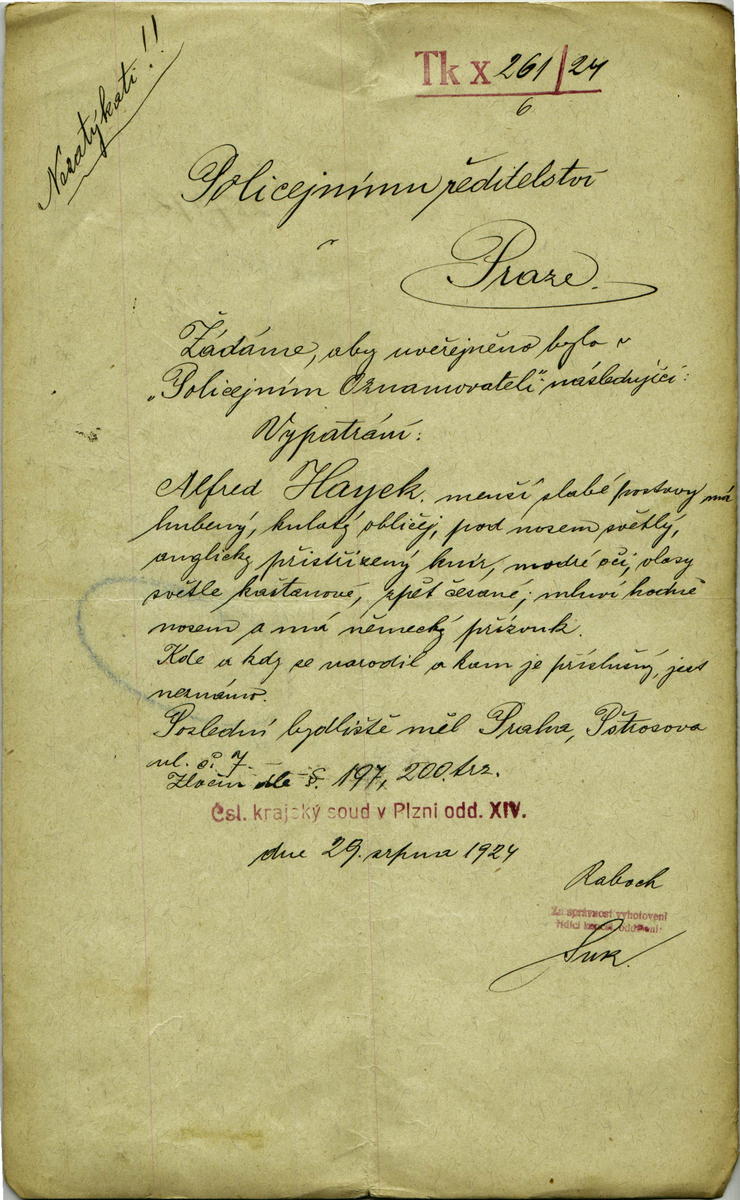 Nezatýkati!!
Tk X 261/24
6
Policejnímu ředitelství
v
Praze.
Žádáme, aby uveřejněno bylo v
„Policejním Oznamovateli“ následující:
Vypátrání:
Alfred Hayek. menší slabé postavy má
hubený, kulatý obličej, pod nosem světlý,
anglicky přistřižený knír, modré oči, vlasy
světle kaštanové, zpět česané; mluví hodně
nosem a má německý přízvuk.
Kde a kdy se narodil a kam je příslušný, jest
neznámo.
Poslední bydliště měl Praha, Pštrosova
ul. č. 7.
Zločin dle §. 197, 200. trz.
Čsl. krajský soud v Plzni odd. XIV.
dne 29. srpna 1924
Raboch
Za správnost vyhotovení
řídící kancel. oddělení:
Suk.